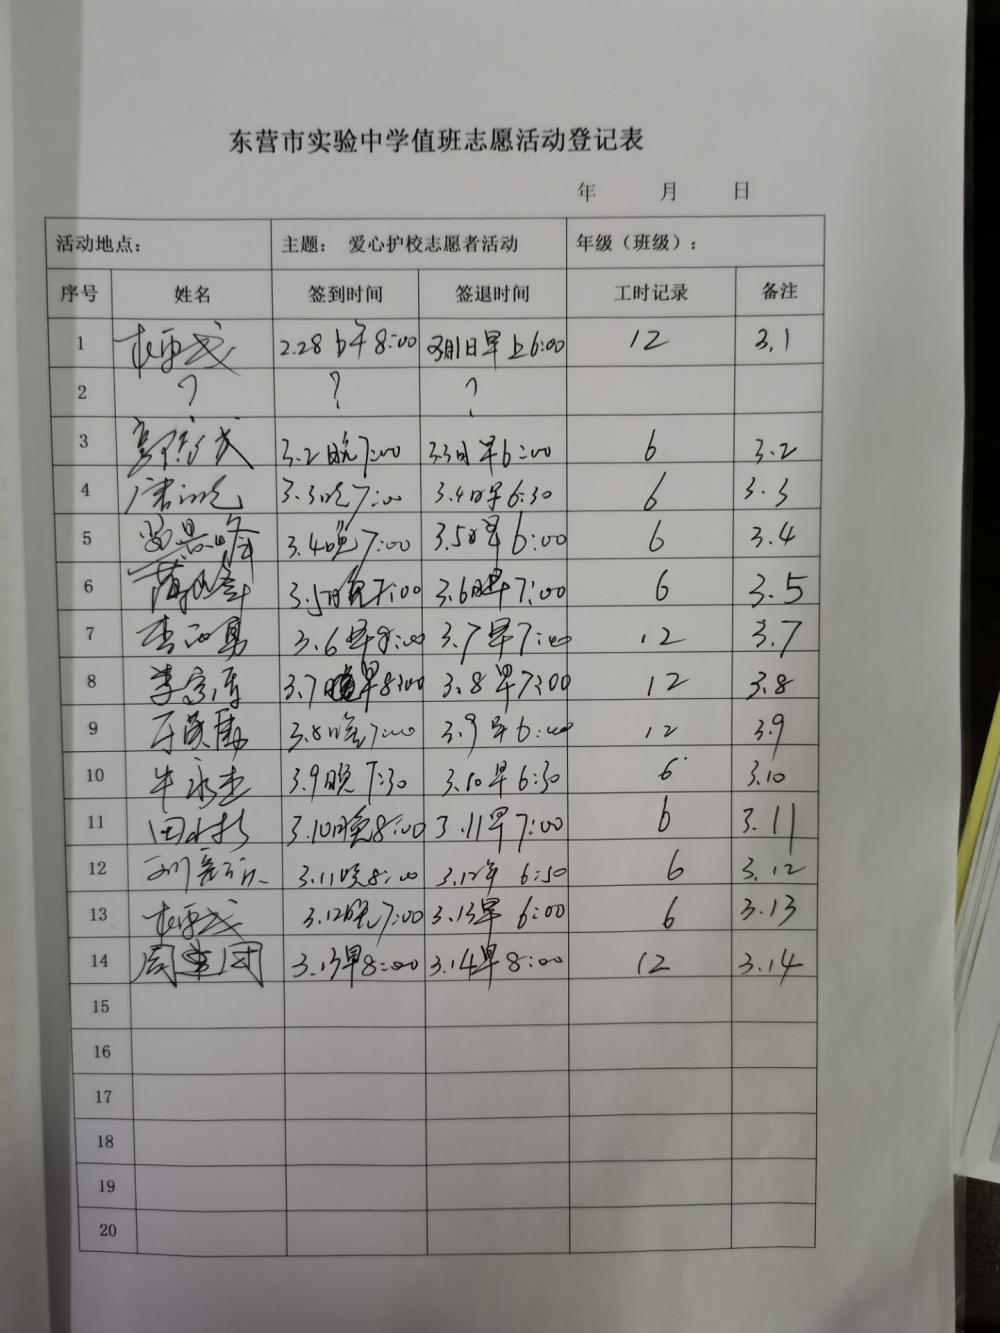 东营市实验中学值班志愿活动登记表
年 月 日
活动地点： 主题： 爱心护校志愿者活动 年级（班级）：
序号 姓名 签到时间 签退时间 工时记录 备注
1 2.28 下午8:00 3月1日早上6:00 12 3.1
2 ? ? ?
3 3.2晚7:00 3.3日早6:00 6 3.2
4 3.3晚7:00 3.4日早6:30 6 3.3
5 3.4晚7:00 3.5日早6:00 6 3.4
6 3.5日晚7:00 3.6日早7:00 6 3.5
7 3.6早8:00 3.7早7:00 12 3.7
8 3.7早8:00 3.8早7:00 12 3.8
9 3.8晚7:00 3.9早6:00 12 3.9
10 牛永杰 3.9晚7:30 3.10早6:30 6 3.10
11 3.10晚8:00 3.11早7:00 6 3.11
12 3.11晚8:00 3.12早 6:50 6 3.12
13 3.12晚7:00 3.13早 6:00 6 3.13
14 3.13早8:00 3.14早8:00 12 3.14
15
16
17
18
19
20